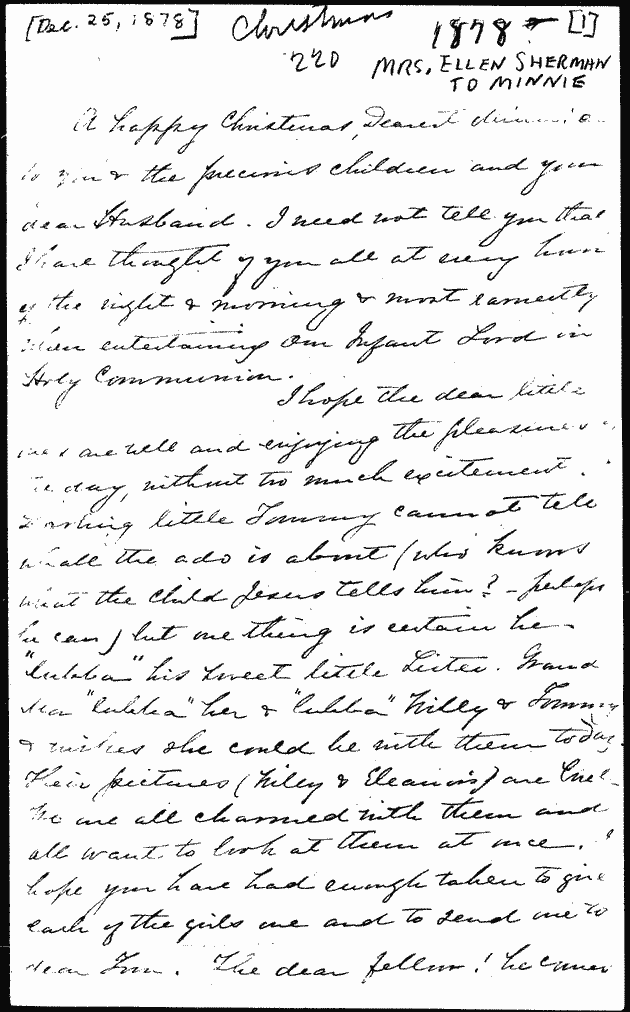 [Dec. 25, 1878] Christmas 1878 [1]
220 MRS. ELLEN SHERMAN
TO MINNIE
A happy Christmas, Dearest
to you & the precious children and your
dear Husband. I need not tell you that
I have thought of you all at every hour
of the night & morning & most earnestly
when entertaining Our Infant Lord in
Holy Communion.
I hope the dear little
ones are well and enjoying the pleasures
day, without too much excitement.
Darling little Tommy cannot tell
the ado is about (who knows
what the Child Jesus tells him? - perhaps
he can) but one thing is certain he
"lubba" his sweet little Sister. Grand
Ma "lubba" her & "lubba" Willy & Tommy
& wishes she could be with them today.
Their pictures (Willy & Eleanor's) are
We are all charmed with them and
all want to look at them at once. I
hope you have had enough taken to give
each of the girls one and to send one to
dear Tom. The dear fellow! he comes